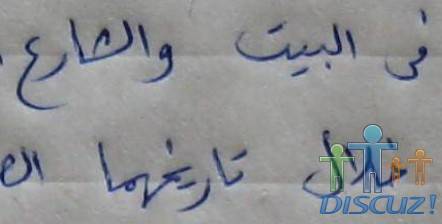 فى البيت والشارع.
خلال تاريخهما
DISCUZ!